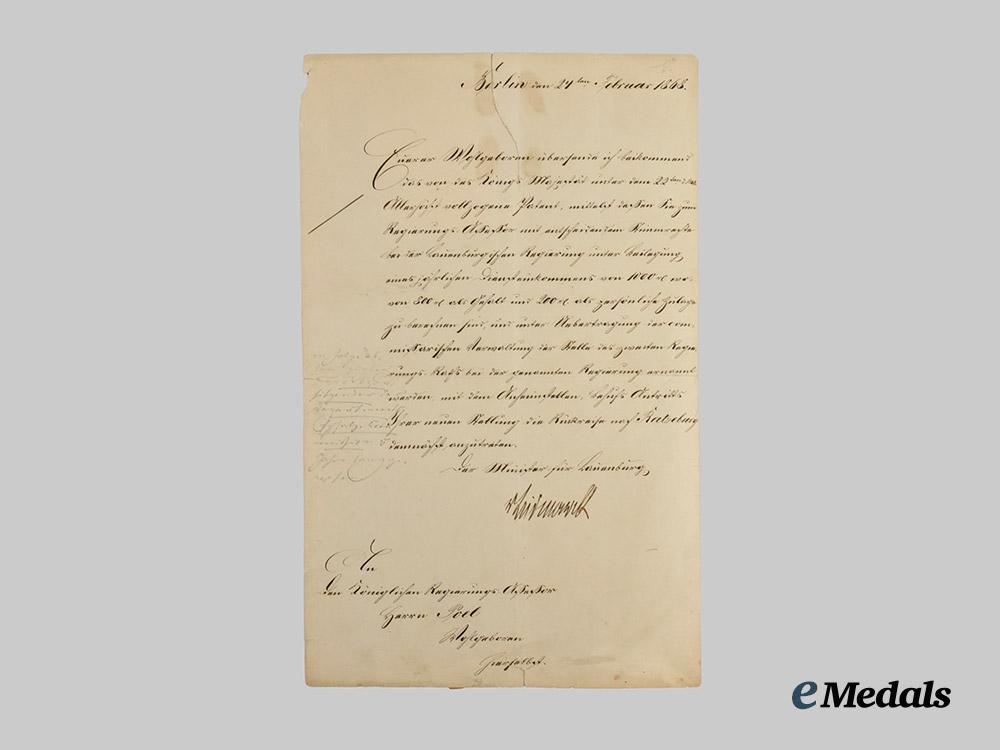 Berlin den 27ten Februar 1868.
Euerer Wohlgeboren übersende ich beikommend
das von des Königs Majestät unter dem 22ten d. Mts.
Allerhöchst vollzogene Patent, mittelst dessen Sie zum
Regierungs-Assessor mit entscheidendem Stimmrechte
bei der Lauenburgischen Regierung unter Beilegung
eines jährlichen Diensteinkommens von 1000 rl wo-
von 800 rl als Gehalt und 200 rl als persönliche Zulage
zu berechnen sind, und unter Uebertragung der com-
missarischen Verwaltung der Stelle des zweiten Regie-
rungs-Raths bei der genannten Regierung ernannt
werden, mit dem Anheimstellen, behufs Antritts
Ihrer neuen Stellung die Rückreise nach Ratzeburg
demnächst anzutreten.
Der Minister für Lauenburg,
v Bismarck
An
den Königlichen Regierungs-Assessor
Herrn Poel
Wohlgeboren
hierselbst.
eMedals